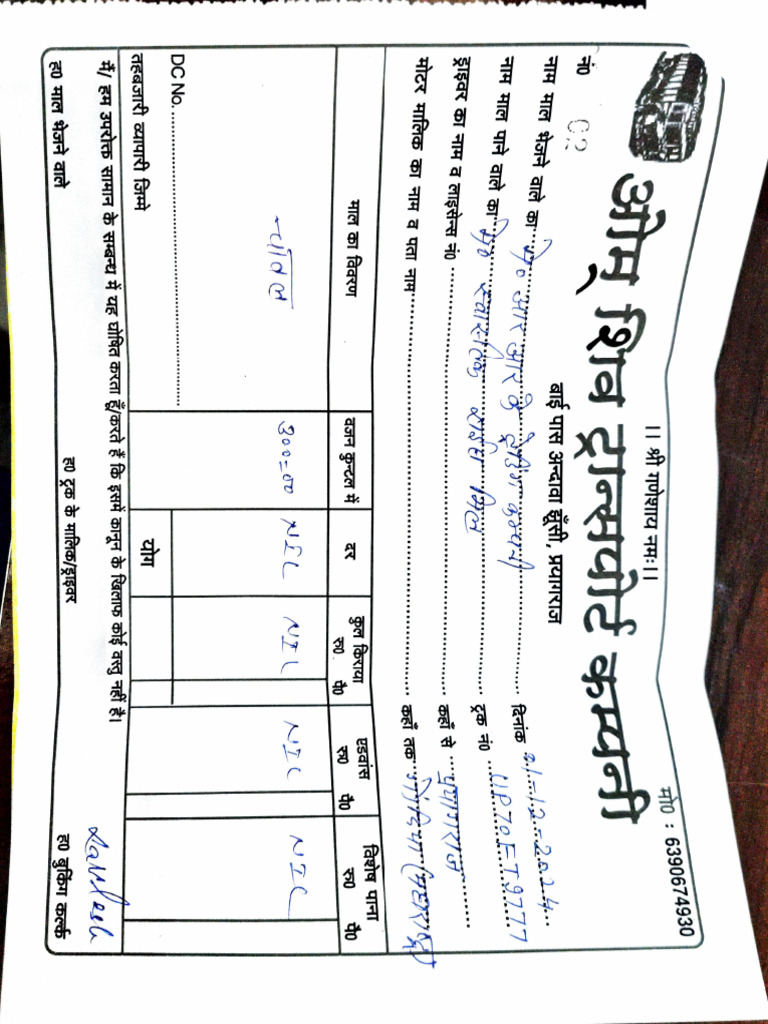 ।। श्री गणेशाय नमः।।
मो० : 6390674930
ओम् शिव ट्रान्सपोर्ट कम्पनी
बाई पास अन्दावा झूँसी, प्रयागराज
नं० 02
दिनांक 21-12-2024
नाम माल भेजने वाले का मे० आर० आर० के ट्रेडिंग कम्पनी
ट्रक नं० UP70FT9777
नाम माल पाने वाले का मे० स्वास्तिक राईस मिल
कहाँ से प्रयागराज
ड्राइवर का नाम व लाइसेन्स नं०
कहाँ तक गोंदिया (महाराष्ट्र)
मोटर मालिक का नाम व पता नाम
माल का विवरण वजन कुन्टल में दर कुल किराया रु० पै० एडवांस रु० पै० विशेष पाना रु० पै०
चावल 300=00 NIL NIL NIL NIL
DC No.
योग
तहबजारी व्यापारी जिम्मे
मैं/ हम उपरोक्त सामान के सम्बन्ध में यह घोषित करता हूँ/करते हैं कि इसमें कानून के खिलाफ कोई वस्तु नहीं है।
ह० माल भेजने वाले ह० ट्रक के मालिक/ड्राइवर ह० बुकिंग क्लर्क